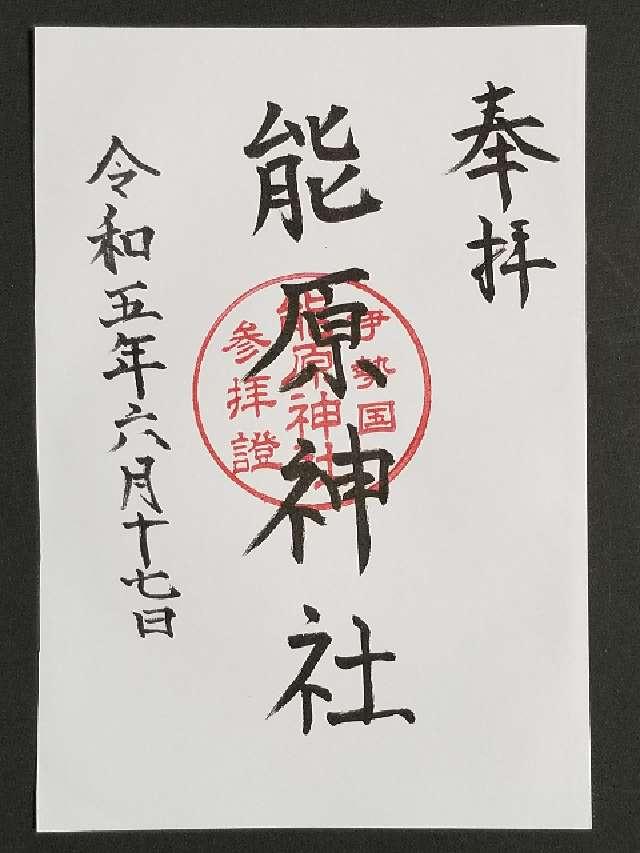 奉拝
能原神社
伊勢国
能原神社
参拝證
令和五年六月十七日